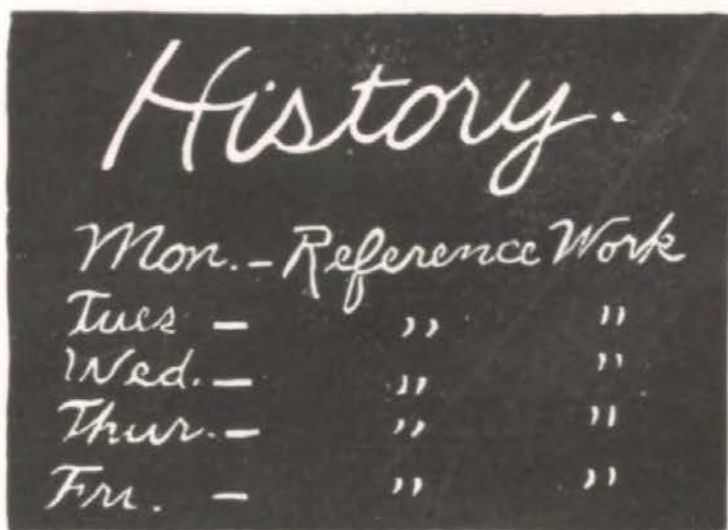 History.
Mon. - Reference Work
Tues - " "
Wed. - " "
Thur. - " "
Fri. - " "